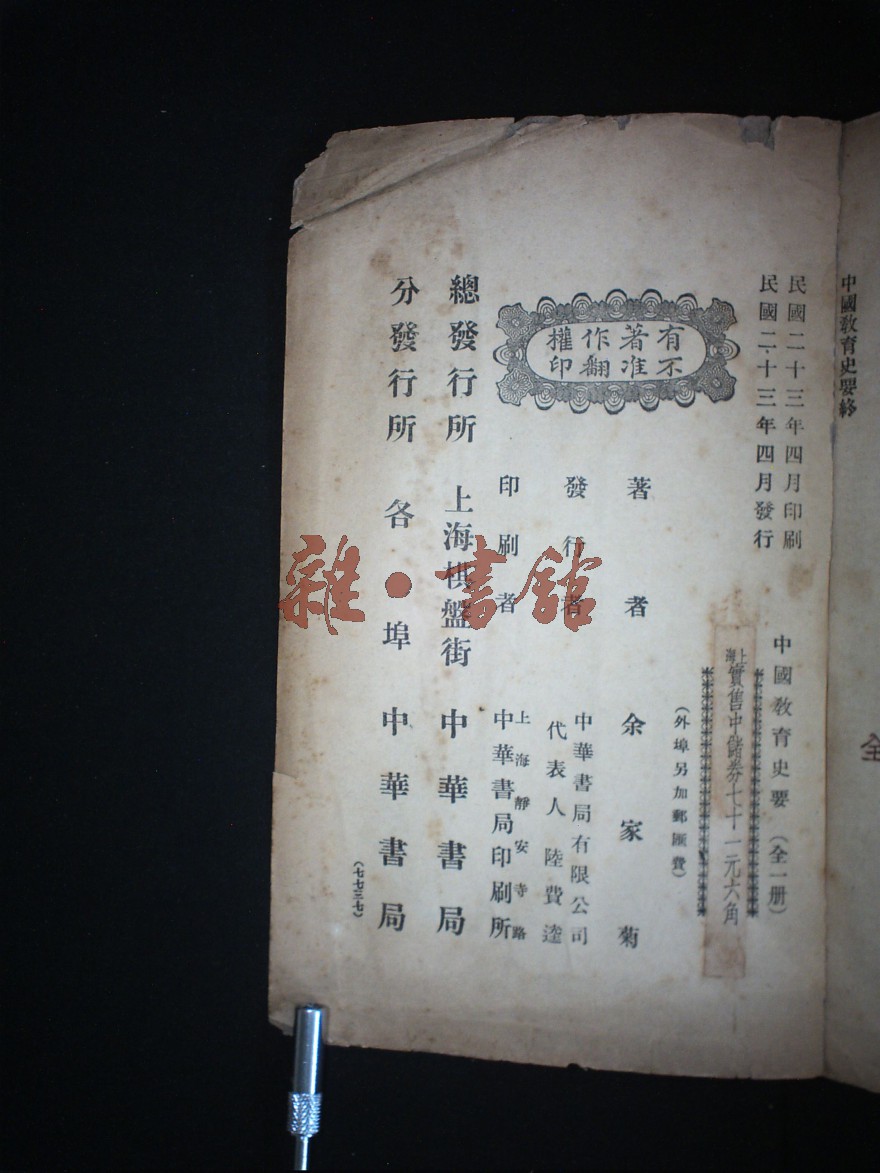 中國教育史要終
民國二十三年四月印刷
民國二十三年四月發行
中國教育史要（全一册）
上海實售中儲券七十一元六角
（外埠另加郵匯費）
有著作權
不准翻印
著者 余家菊
發行者 中華書局有限公司
代表人 陸費逵
印刷者 上海靜安寺路
中華書局印刷所
總發行所 上海棋盤街 中華書局
分發行所 各埠 中華書局
（七七三七）
雜·書館
全